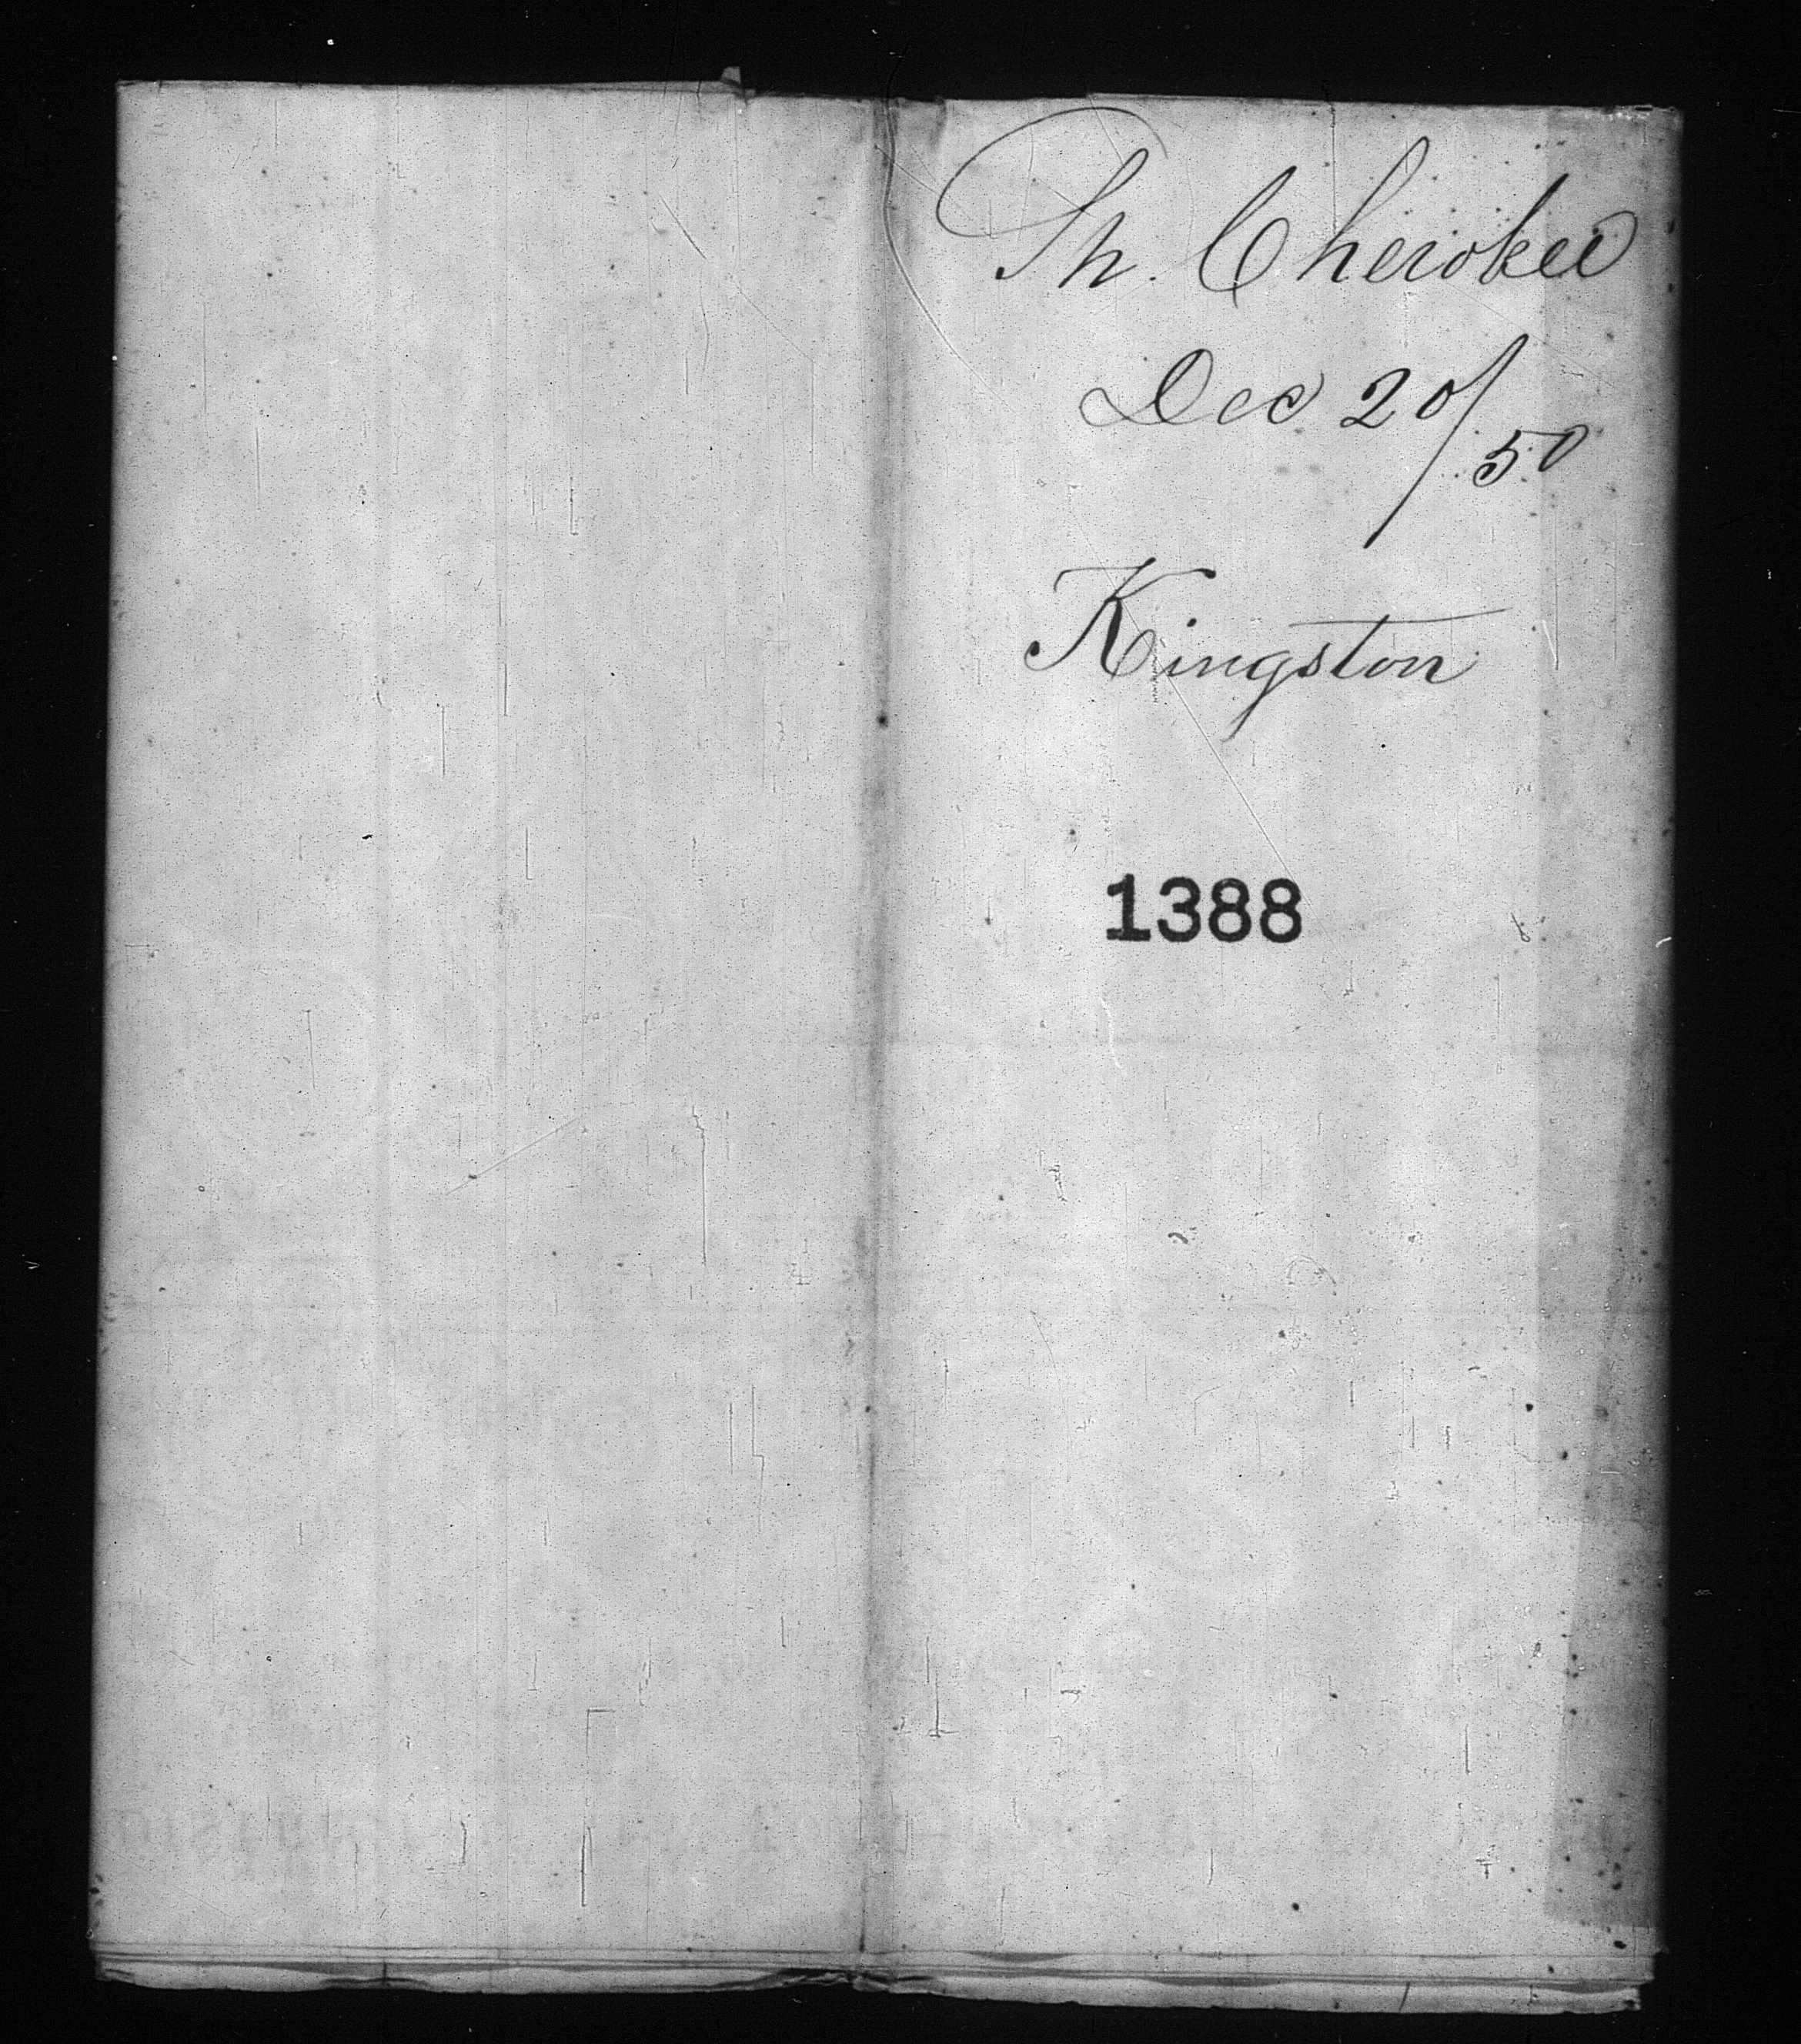 Sh. Cherokee
Dec 20/50
Kingston
1388